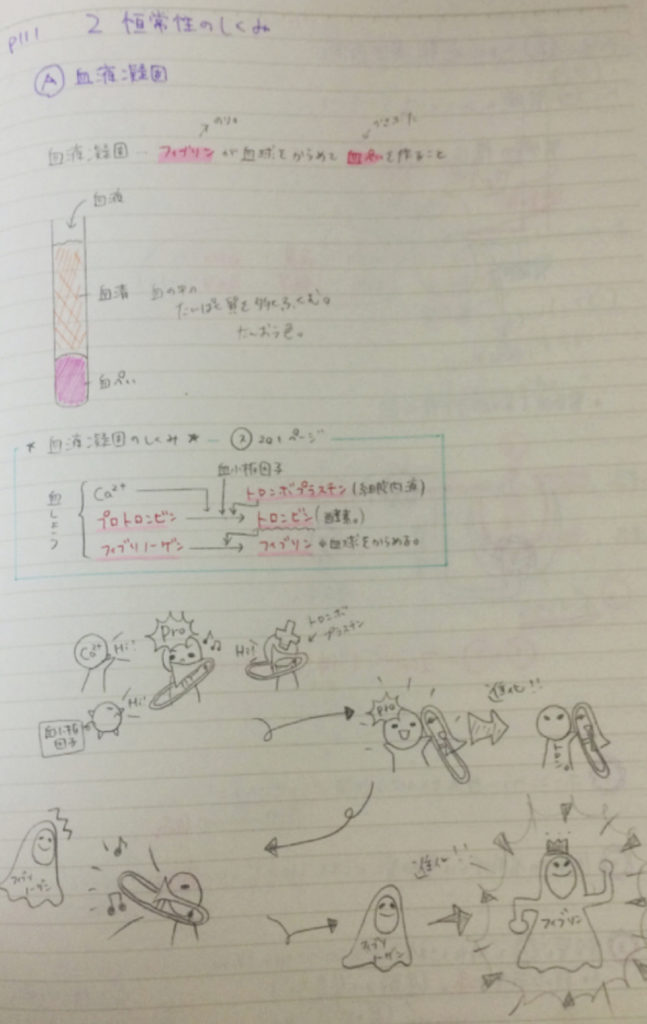 p111
2 恒常性のしくみ
Ⓐ 血液凝固
のり
かさぶた
血液凝固… フィブリンが血球をからめて血ぺいを作ること
血液
血清 血の中の
たんぱく質を多くふくむ。
たんおう色。
血ぺい
* 血液凝固のしくみ * ページ
血小板因子
血しょう
Ca²⁺ トロンボプラスチン(細胞内液)
プロトロンビン トロンビン(酵素。)
フィブリノーゲン フィブリン 血球をからめる。
Pro
トロンボ
プラスチン
Ca²⁺ Hi! Hi!
Hi!
血小板
因子
Pro
進化!!
トロンビン
フィブリ
ノーゲン
進化!!
フィブリ
ノーゲン
フィブリン